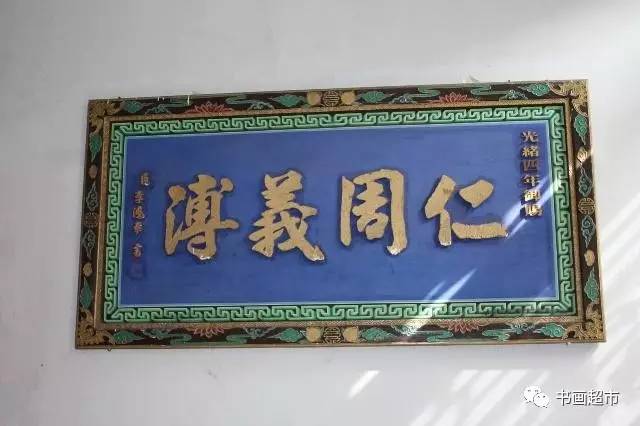 光緒四年御賜
仁周義溥
臣李鴻章書
书画超市